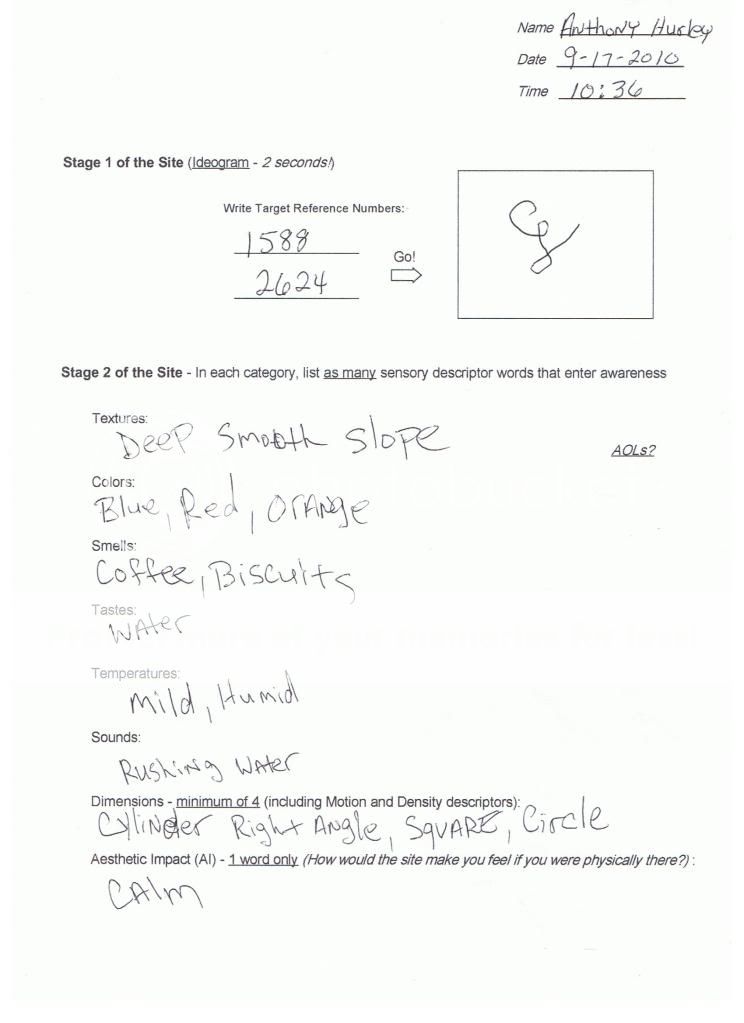 Name Anthony Hurley
Date 9-17-2010
Time 10:36
Stage 1 of the Site (Ideogram - 2 seconds!)
Write Target Reference Numbers:
1588
Go!
2624
Stage 2 of the Site - In each category, list as many sensory descriptor words that enter awareness
Textures:
Deep Smooth Slope
AOLs?
Colors:
Blue, Red, Orange
Smells:
Coffee, Biscuits
Tastes:
Water
Temperatures:
Mild, Humid
Sounds:
Rushing Water
Dimensions - minimum of 4 (including Motion and Density descriptors):
Cylinder Right Angle, Square, Circle
Aesthetic Impact (AI) - 1 word only (How would the site make you feel if you were physically there?) :
Calm